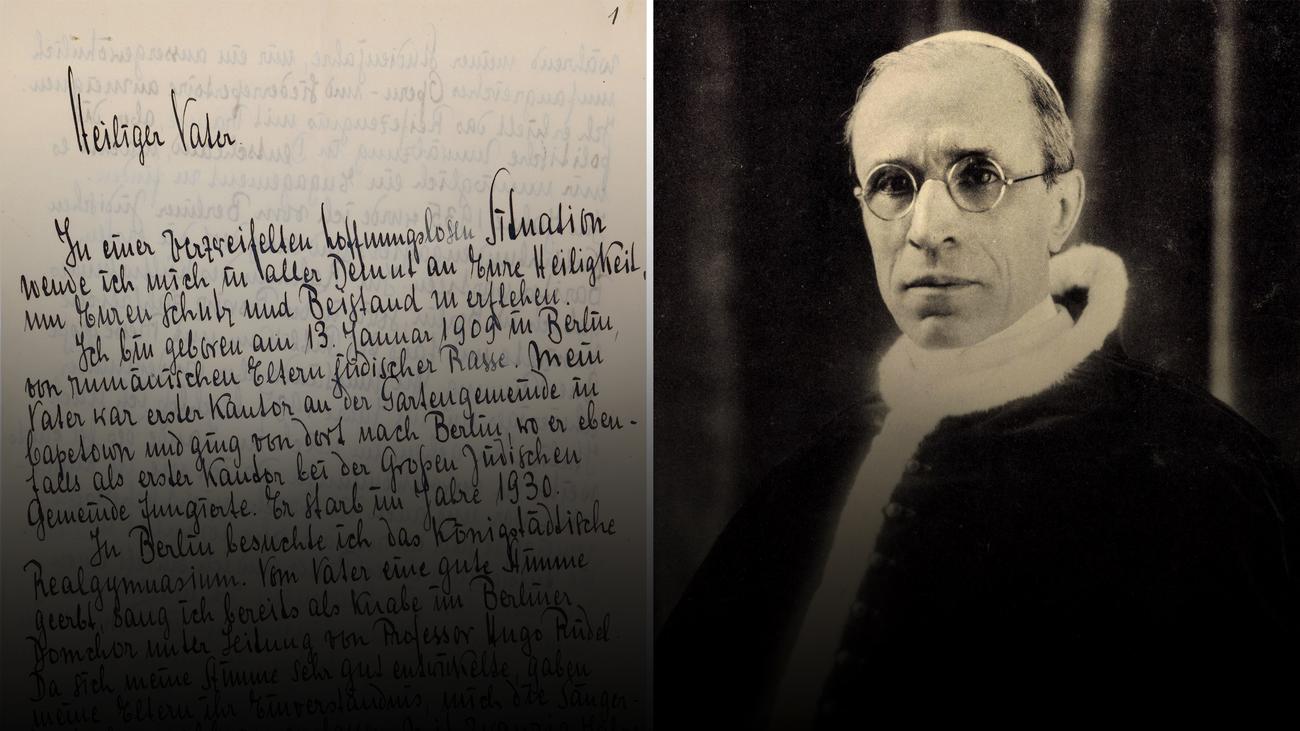 1
Heiliger Vater.
In einer verzweifelten hoffnungslosen Situation
wende ich mich in aller Demut an Eure Heiligkeit,
um Euren Schutz und Beistand zu erflehen.
Ich bin geboren am 13. Januar 1909 in Berlin,
von rumänischen Eltern jüdischer Rasse. Mein
Vater war erster Kantor an der Gartengemeinde in
Capetown und ging von dort nach Berlin, wo er eben-
falls als erster Kantor bei der Großen Jüdischen
Gemeinde fungierte. Er starb im Jahre 1930.
In Berlin besuchte ich das Königstädtische
Realgymnasium. Vom Vater eine gute Stimme
geerbt, sang ich bereits als Knabe im Berliner
Domchor unter Leitung von Professor Hugo Rüdel.
Da sich meine Stimme sehr gut entwickelte, gaben
meine Eltern ihr Einverständnis, mich die Sänger-